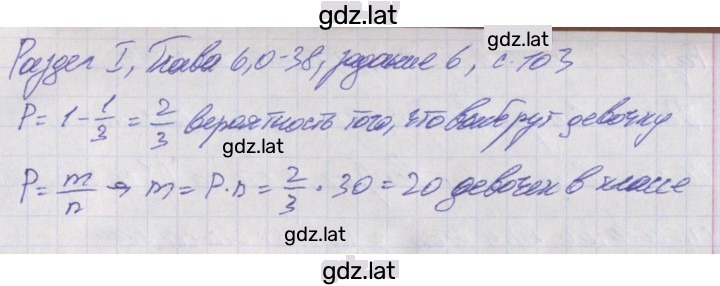 gdz.lat
Раздел I, Глава 6, О-38, задание 6, с. 103
P = 1 - 1/3 = 2/3 вероятность того, что выберут девочку
gdz.lat
P = m/n → m = P · n = 2/3 · 30 = 20 девочек в классе
gdz.lat
gdz.lat